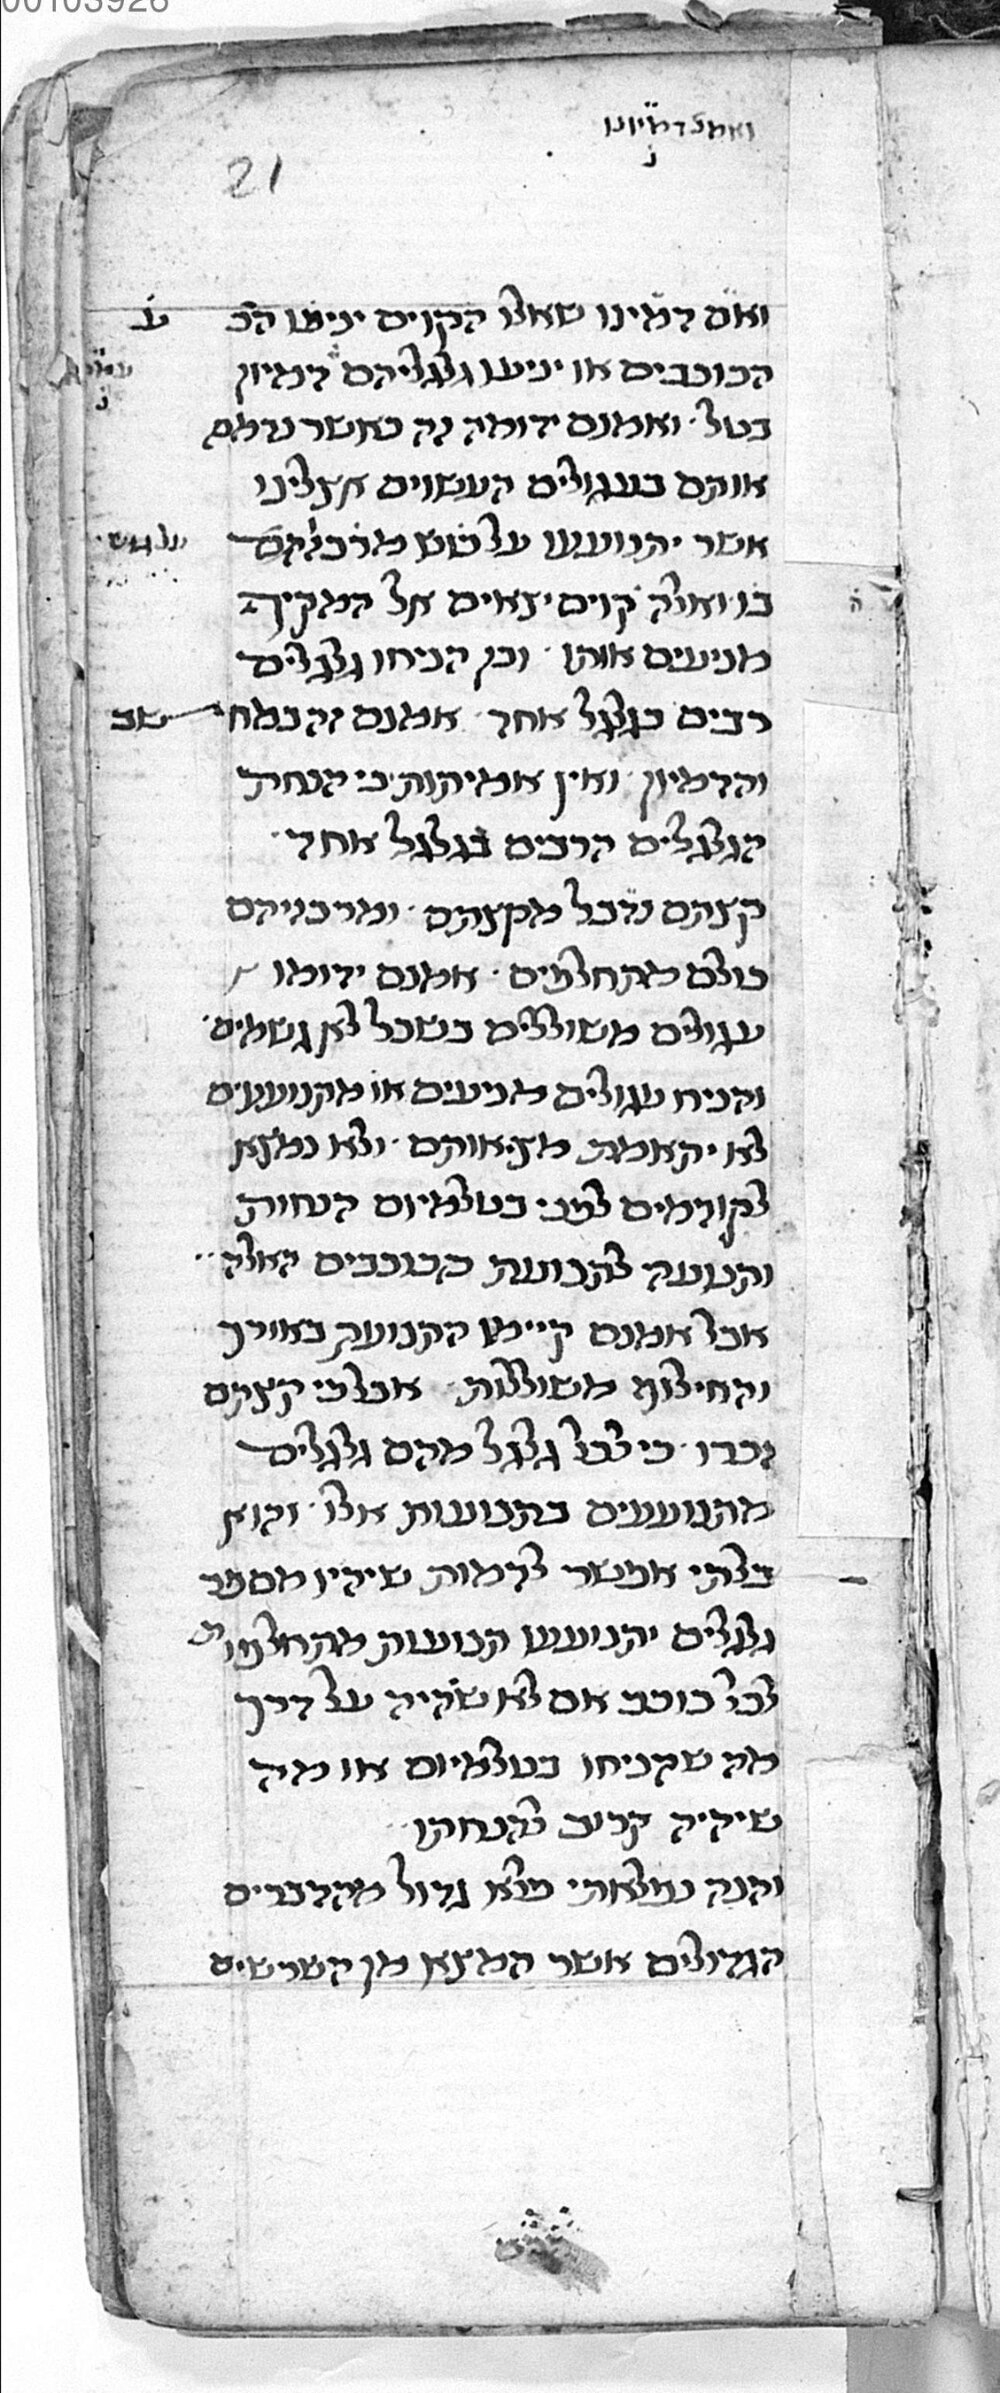 00103926
21
ואם דמינו שאלו הקוים יניעו הכ
הכוכבים או יניעו גלגליהם דמיון
בטל ואמנם ידומה זה כאשר נדמה
אותם בעגולים העשוים אצלינו
אשר יתנועעו על
בו ואלה קוים יוצאים אל המקיף
מניעים אותו וכן הניחו גלגלים
רבים בגלגל אחד אמנם זה במח שב
והדמיון ואין אמיתות כי הנחת
הגלגלים הרבים בגלגל אחד
קצתם נדבל מקצתם ומרכזיהם
כולם מתחלפים אמנם ידומו
עגולים משוללים בשכל לא גשמים
והניח עגולים מניעים או מתנועעים
לא יתאמת מציאותם ולא נמצא
לקודמים לפני בטלמיוס הנחות
והנועה לתנועת הכוכבים האלה
אבל אמנם קיימו התנועה באורך
והחילוף משוללות אבל כי קצתם
זכרו כי לכל גלגל מהם גלגלים
מתנועעים בתנועות אלו והוא
בלתי אפשר לדמות שיהיו מספר
גלגלים יתנועעו תנועות מתחלפות
לכל כוכב אם לא שיהיה על דרך
מה שהניחו בטלמיוס או מה
שיהיה קרוב להנחתו
והנה נפלאתי פלא גדול מהדברים
הגדולים אשר המציא מן השרשים